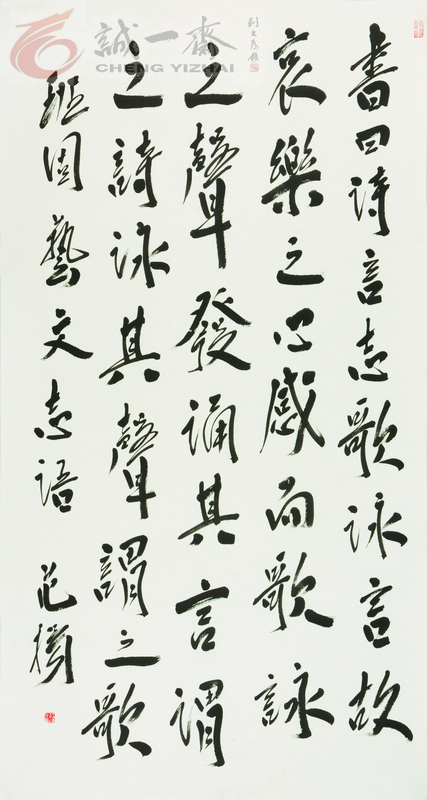 書曰詩言志歌詠言故
哀樂之心感而歌詠
之聲發誦其言謂
之詩詠其聲謂之歌
班固藝文志語
誠一齋
CHENG YIZHAI